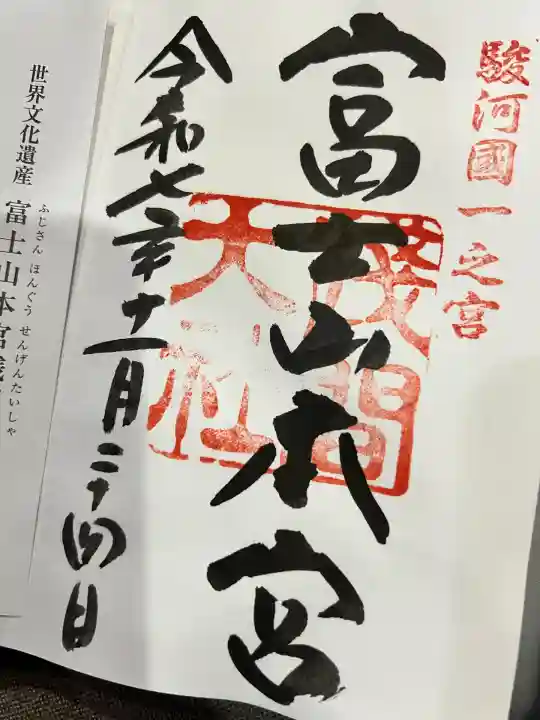 駿河國一之宮
富士山本宮
淺間
大社
令和七年十一月二十四日
世界文化遺産
富士山本宮浅
ふじさん ほんぐう せんげんたいしゃ